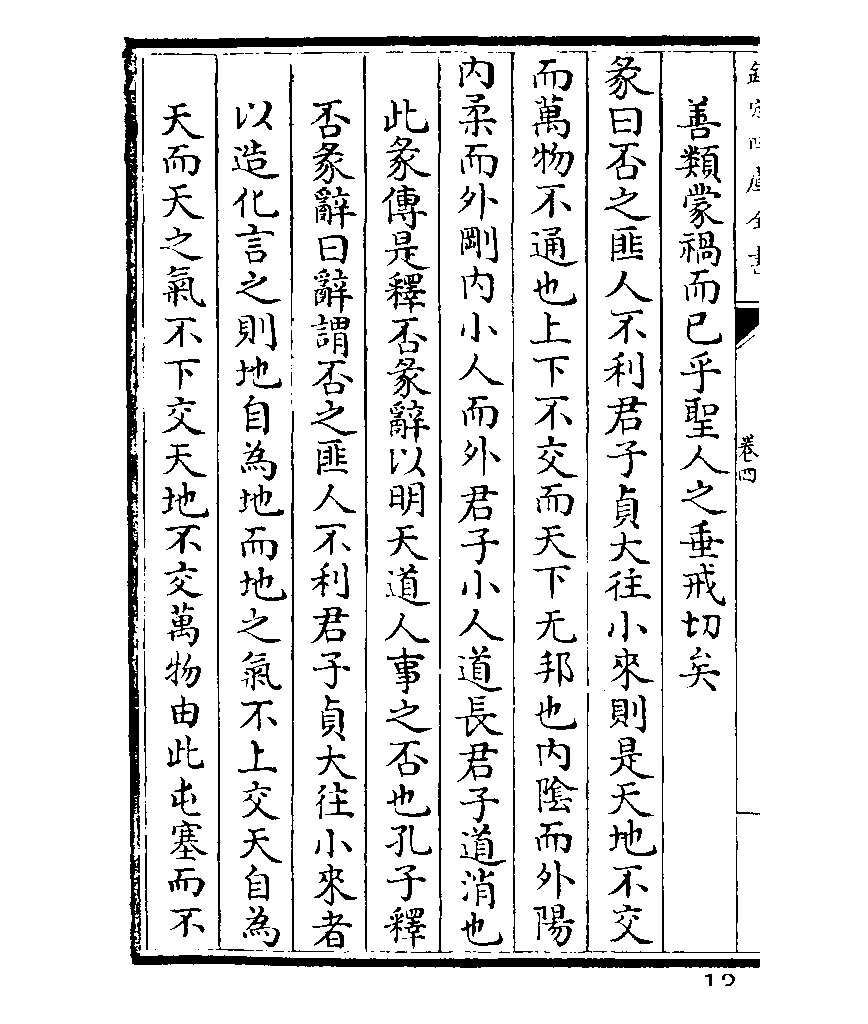 欽定四庫全書
卷四
善類蒙禍而已乎聖人之垂戒切矣
彖曰否之匪人不利君子貞大往小來則是天地不交
而萬物不通也上下不交而天下无邦也内陰而外陽
内柔而外剛内小人而外君子小人道長君子道消也
此彖傳是釋否彖辭以明天道人事之否也孔子釋
否彖辭曰辭謂否之匪人不利君子貞大往小來者
以造化言之則地自為地而地之氣不上交天自為
天而天之氣不下交天地不交萬物由此屯塞而不
12